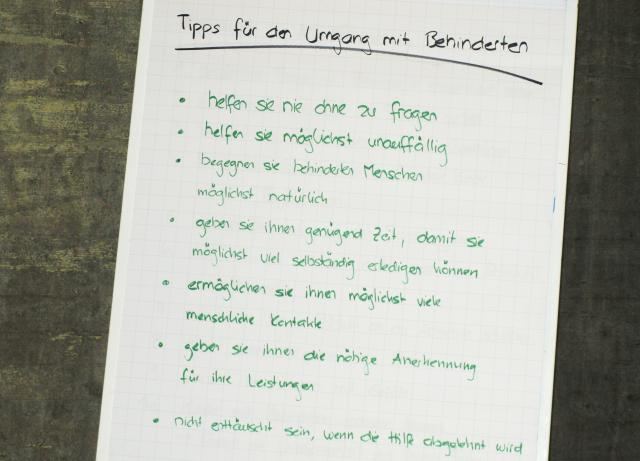 Tipps für den Umgang mit Behinderten
• helfen sie nie ohne zu fragen
• helfen sie möglichst unauffällig
• begegnen sie behinderten Menschen
möglichst natürlich
• geben sie ihnen genügend Zeit, damit sie
möglichst viel selbständig erledigen können
• ermöglichen sie ihnen möglichst viele
menschliche Kontakte
• geben sie ihnen die nötige Anerkennung
für ihre Leistungen
• nicht enttäuscht sein, wenn die Hilfe abgelehnt wird